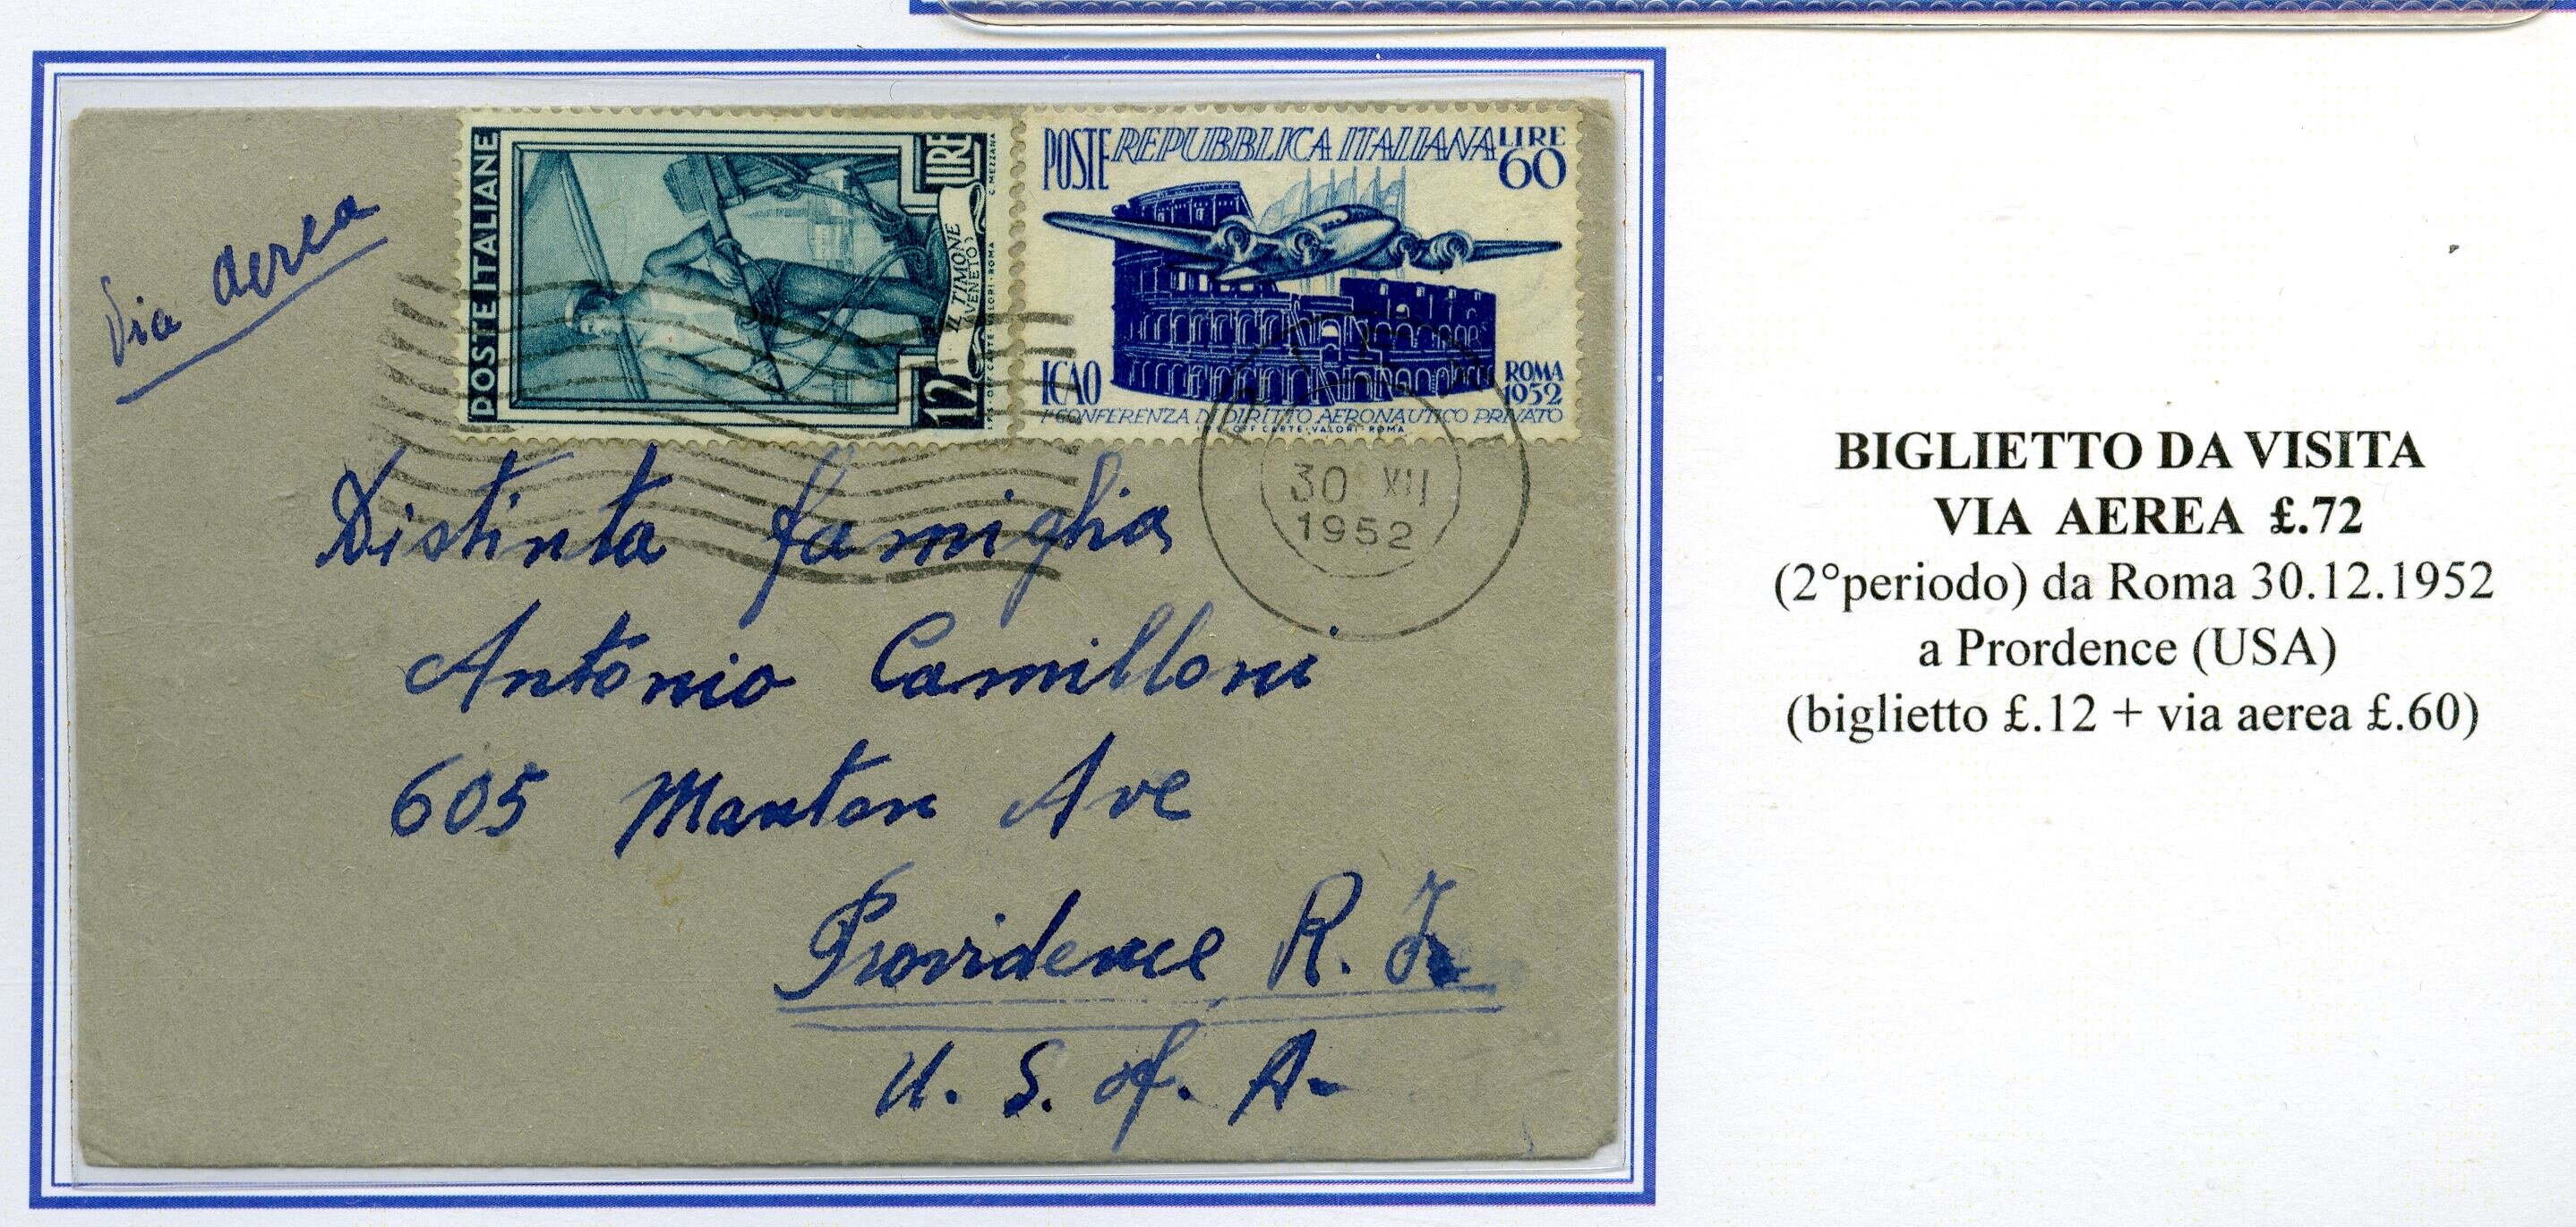 Via aerea
POSTE ITALIANE
LIRE
12
IL TIMONE
(VENETO)
C. MEZZANA
I.P.S. OFF. CARTE VALORI - ROMA
POSTE REPUBBLICA ITALIANA LIRE
60
ICAO
ROMA
1952
1ª CONFERENZA DI DIRITTO AERONAUTICO PRIVATO
OFF. CARTE VALORI ROMA
30 XII
1952
Distinta famiglia
Antonio Camilloni
605 Manton Ave
Providence R. I.
U. S. of. A.
BIGLIETTO DA VISITA
VIA AEREA £.72
(2°periodo) da Roma 30.12.1952
a Prordence (USA)
(biglietto £.12 + via aerea £.60)